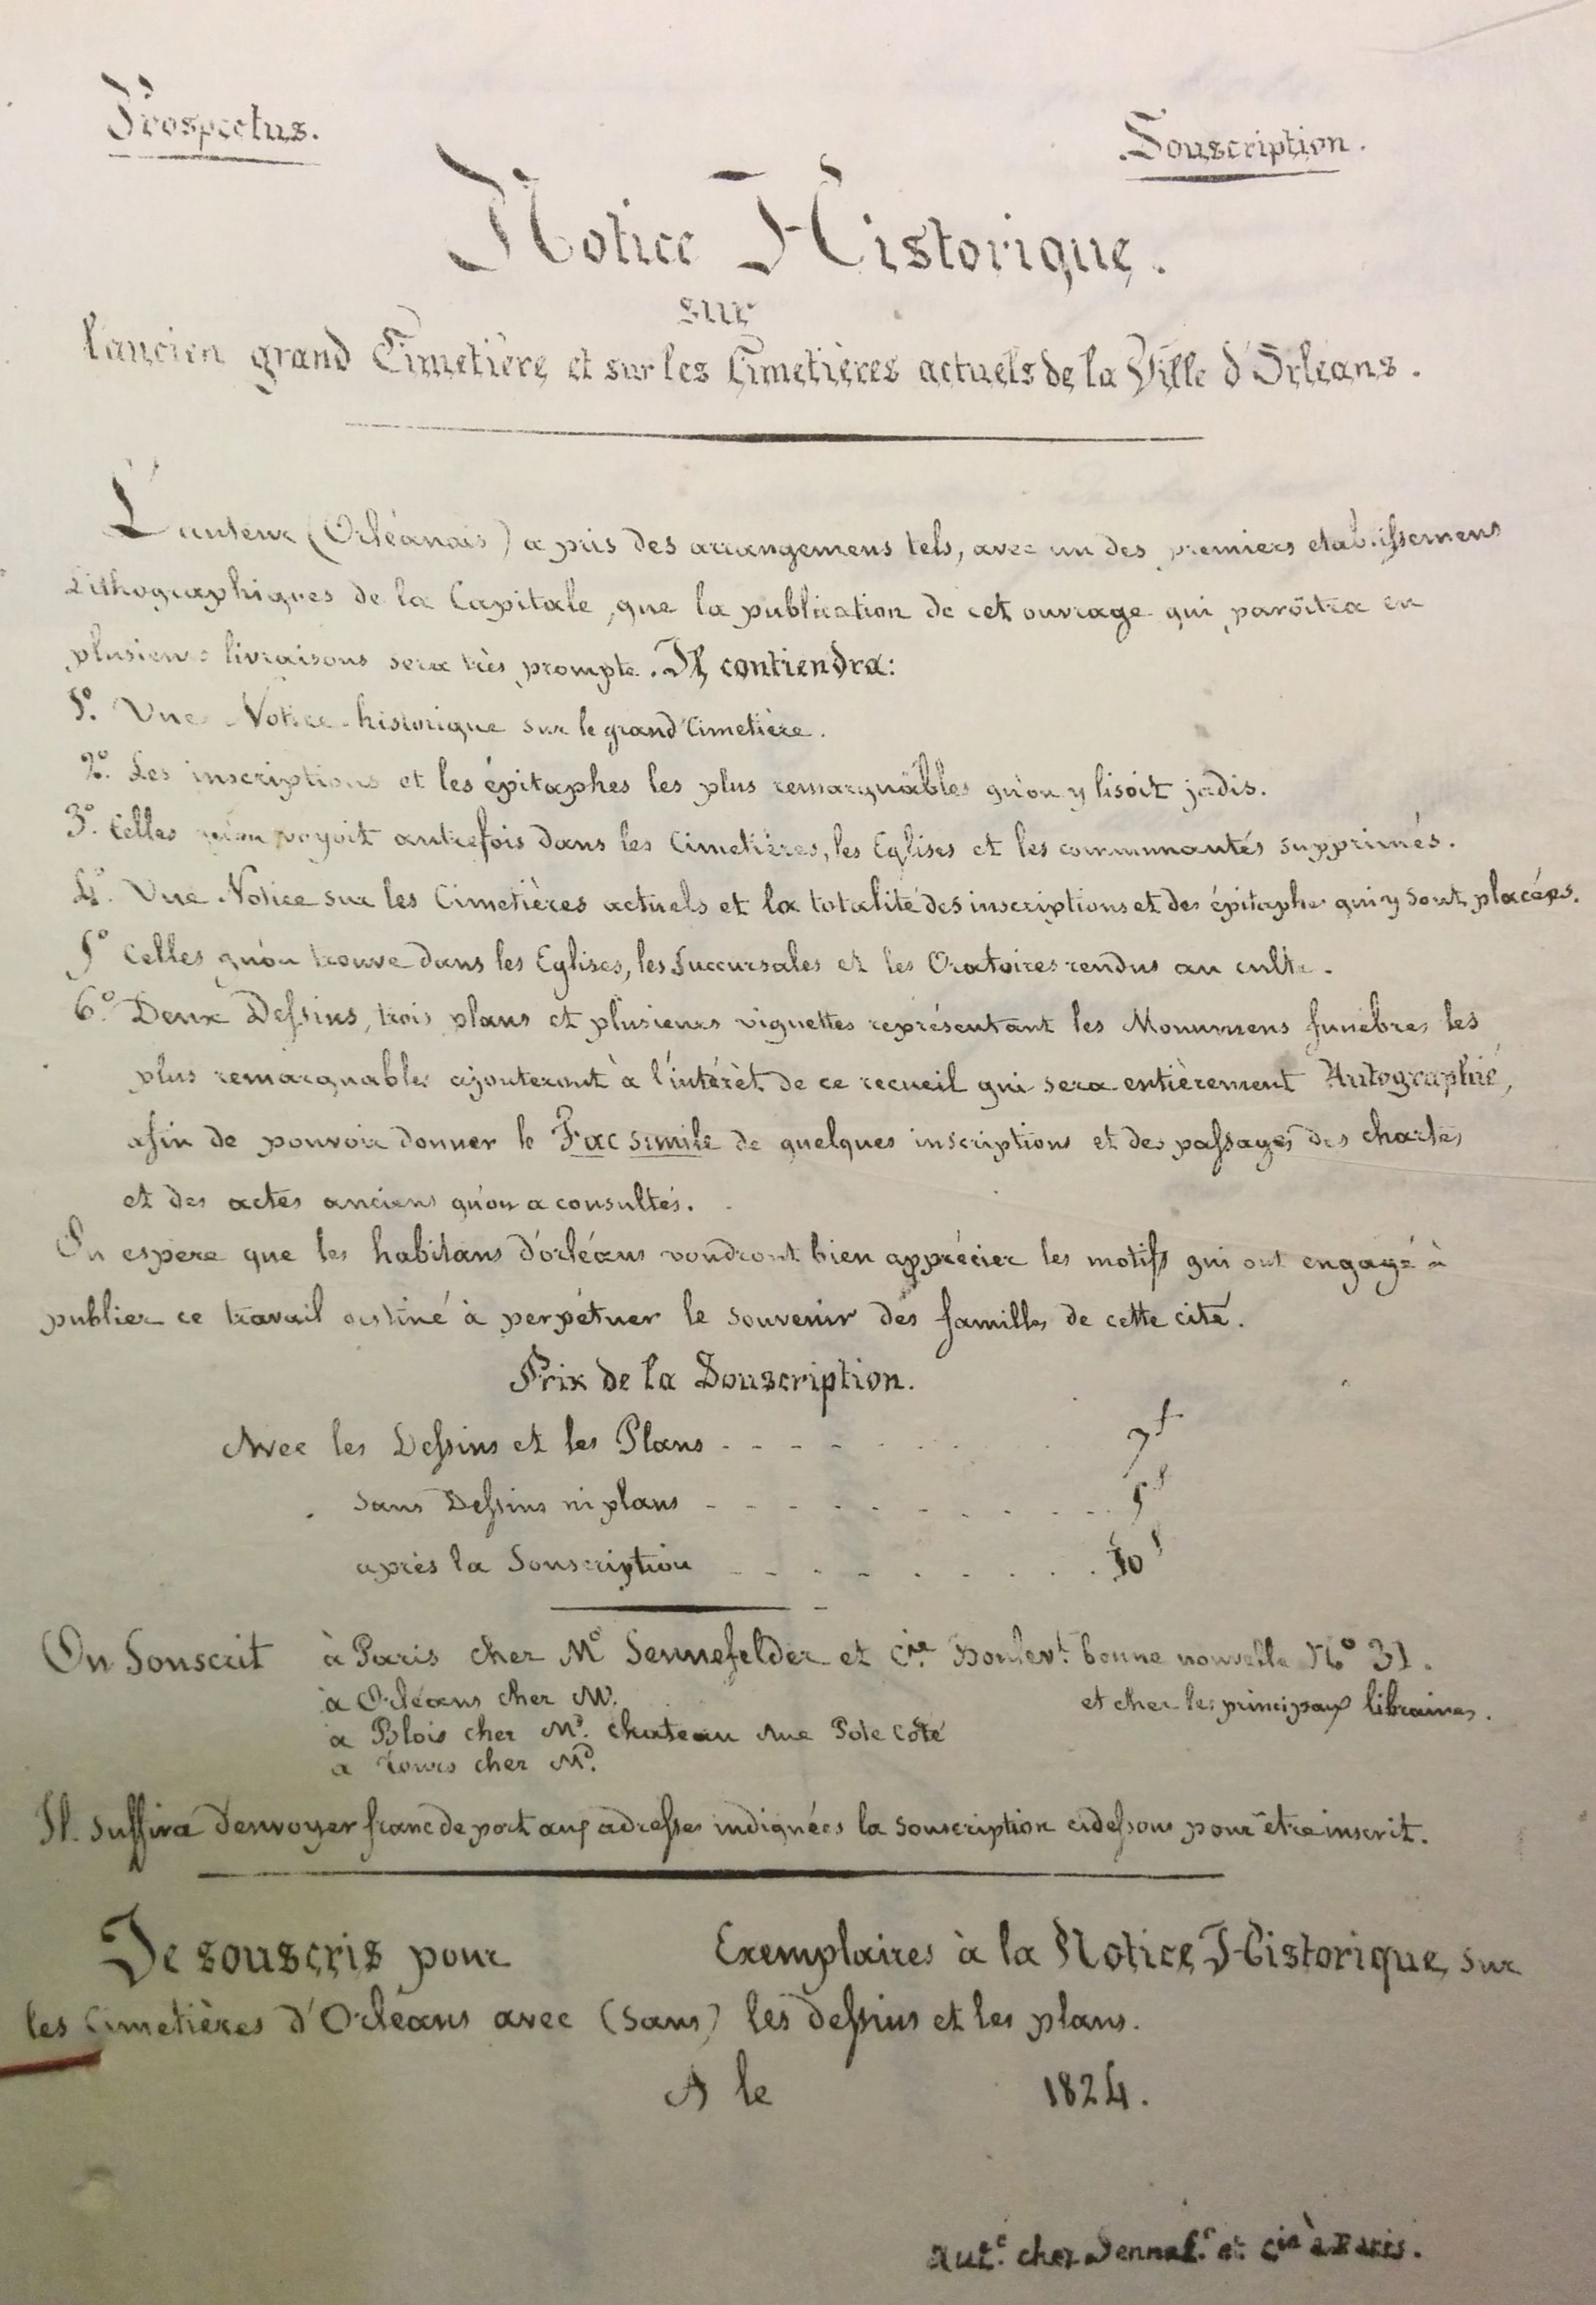 Prospectus.
Souscription.
Notice Historique.
sur
l'ancien grand Cimetière et sur les Cimetières actuels de la Ville d'Orléans.
L'auteur (Orléanais) a pris des arrangemens tels, avec un des premiers etablissemens
Lithographiques de la Capitale, que la publication de cet ouvrage qui paroîtra en
plusieurs livraisons sera très prompte. Il contiendra:
1º. Une Notice historique sur le grand Cimetière.
2º. Les inscriptions et les épitaphes les plus remarquables qu'on y lisoit jadis.
3º. Celles qu'on voyoit autrefois dans les Cimetières, les Eglises et les communautés supprimés.
4º. Une Notice sur les Cimetières actuels et la totalité des inscriptions et des épitaphes qui y sont placées.
5º Celles qu'on trouve dans les Eglises, les Succursales et les Oratoires rendus au culte.
6º. Deux Dessins, trois plans et plusieurs vignettes représentant les Monumens funèbres les
plus remarquables ajouteront à l'intérêt de ce recueil qui sera entièrement Autographié,
afin de pouvoir donner le Fac simile de quelques inscriptions et des passages des chartes
et des actes anciens qu'on a consultés.
On espère que les habitans d'orléans voudront bien apprécier les motifs qui ont engagé à
publier ce travail destiné à perpétuer le souvenir des familles de cette cité.
Prix de la Souscription.
Avec les Dessins et les Plans - - - - - - - 7f
Sans Dessins ni plans - - - - - - - - - 5f
après la Souscription - - - - - - - - - 10f
On Souscrit à Paris chez Mº Sennefelder et Cie. Boulevt. bonne nouvelle Nº 31.
à Orléans chez M. et chez les principaux libraires.
à Blois chez Mr. Chateau Rue Pote Coté
à Tours chez Mr.
Il suffira d'envoyer franc de port aux adresses indiquées la souscription cidessous pour être inscrit.
Je souscris pour Exemplaires à la Notice Historique sur
les Cimetières d'Orléans avec (sans) les dessins et les plans.
A le 1824.
Aut.e chez Sennef.r et Cie à Paris.